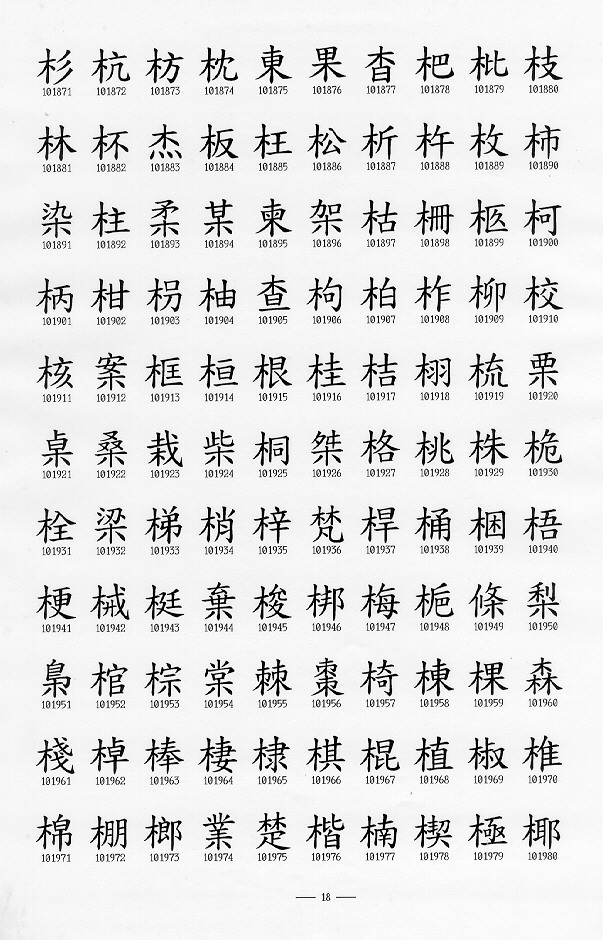 杉 杭 枋 枕 東 果 杳 杷 枇 枝
101871 101872 101873 101874 101875 101876 101877 101878 101879 101880
林 杯 杰 板 枉 松 析 杵 枚 柿
101881 101882 101883 101884 101885 101886 101887 101888 101889 101890
染 柱 柔 某 柬 架 枯 柵 柩 柯
101891 101892 101893 101894 101895 101896 101897 101898 101899 101900
柄 柑 枴 柚 查 枸 柏 柞 柳 校
101901 101902 101903 101904 101905 101906 101907 101908 101909 101910
核 案 框 桓 根 桂 桔 栩 梳 栗
101911 101912 101913 101914 101915 101916 101917 101918 101919 101920
桌 桑 栽 柴 桐 桀 格 桃 株 桅
101921 101922 101923 101924 101925 101926 101927 101928 101929 101930
栓 梁 梯 梢 梓 梵 桿 桶 梱 梧
101931 101932 101933 101934 101935 101936 101937 101938 101939 101940
梗 械 梃 棄 梭 梆 梅 梔 條 梨
101941 101942 101943 101944 101945 101946 101947 101948 101949 101950
梟 棺 棕 棠 棘 棗 椅 棟 棵 森
101951 101952 101953 101954 101955 101956 101957 101958 101959 101960
棧 棹 棒 棲 棣 棋 棍 植 椒 椎
101961 101962 101963 101964 101965 101966 101967 101968 101969 101970
棉 棚 榔 業 楚 楷 楠 楔 極 椰
101971 101972 101973 101974 101975 101976 101977 101978 101979 101980
— 18 —